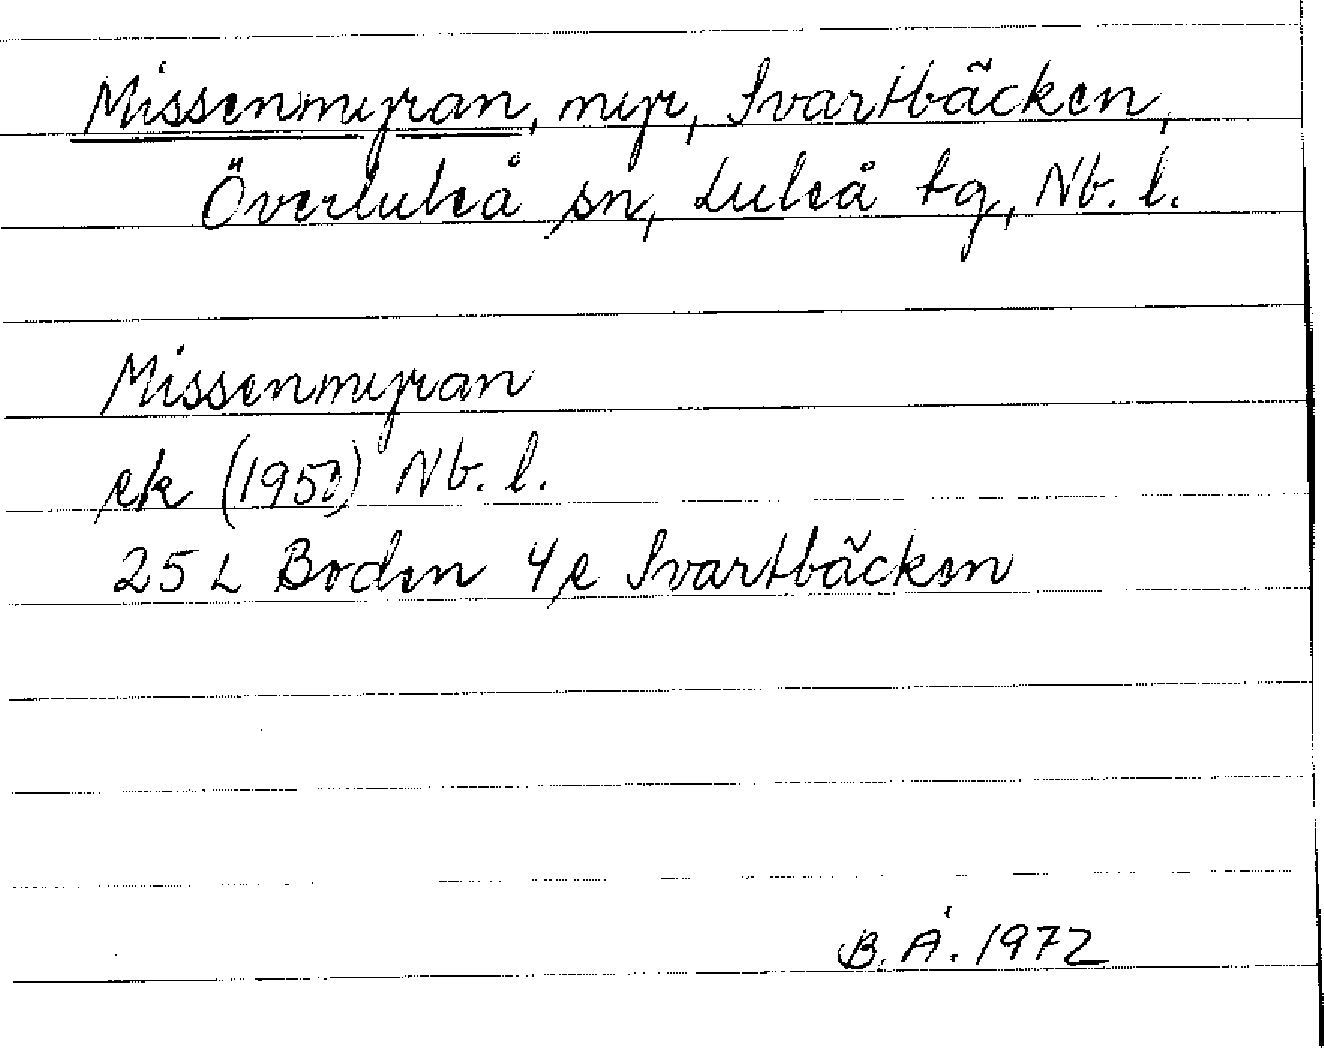 Missenmyran, myr, Svartbäcken,
Överluleå sn, Luleå tg, Nb. l.
Missenmyran
ek (1950) Nb. l.
25 L Boden 4e Svartbäcken
B.Å. 1972